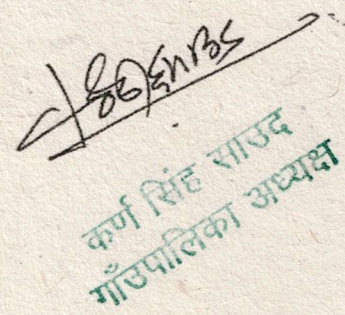 कर्ण सिंह साउद
गाँउपालिका अध्यक्ष